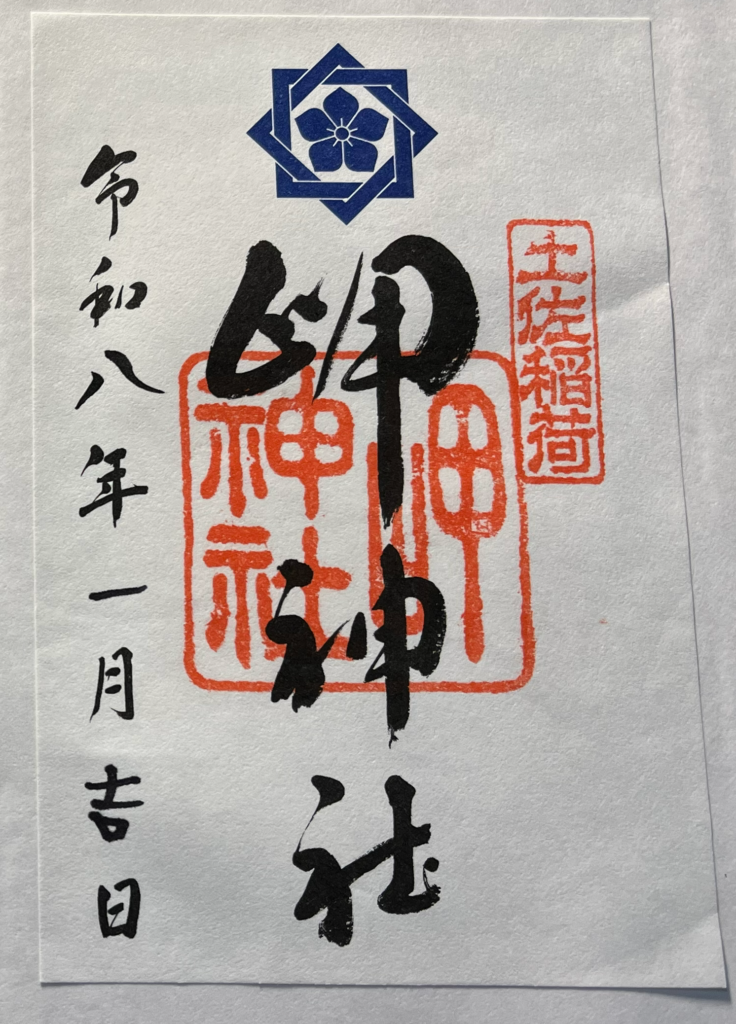 土佐稲荷
岬神社
岬神社
令和八年一月吉日